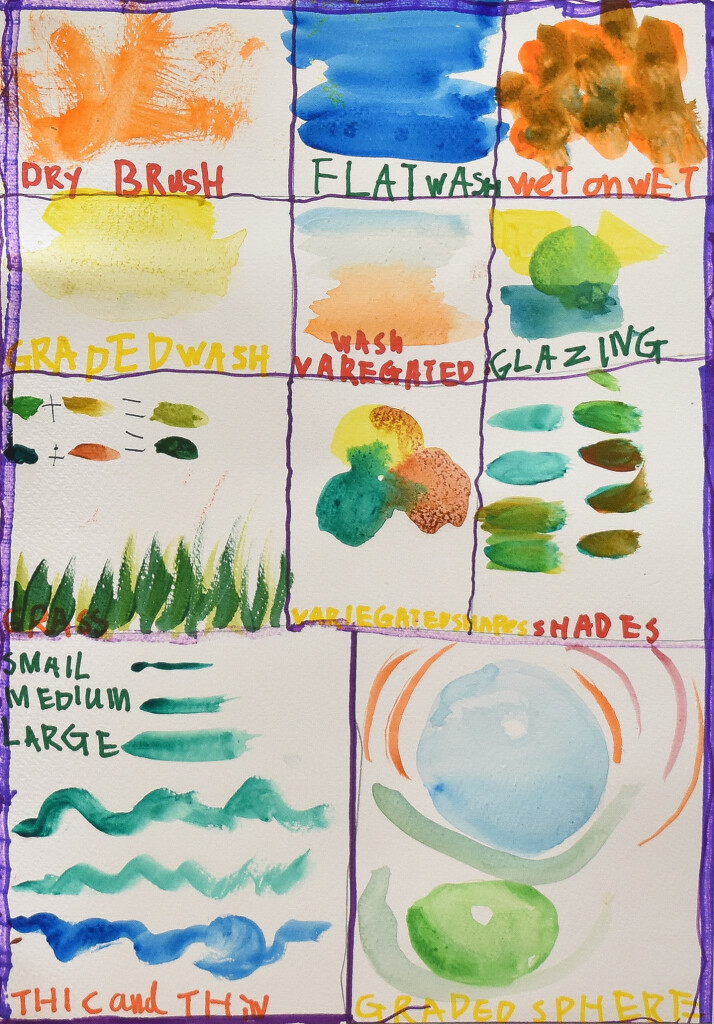 DRY BRUSH
FLAT WASH
WET on WET
GRADED WASH
WASH
VAREGATED
GLAZING
+ =
+ =
GRASS
VARIEGATED SHAPES
SHADES
SMAIL
MEDIUM
LARGE
THIC and THIN
GRADED SPHERE